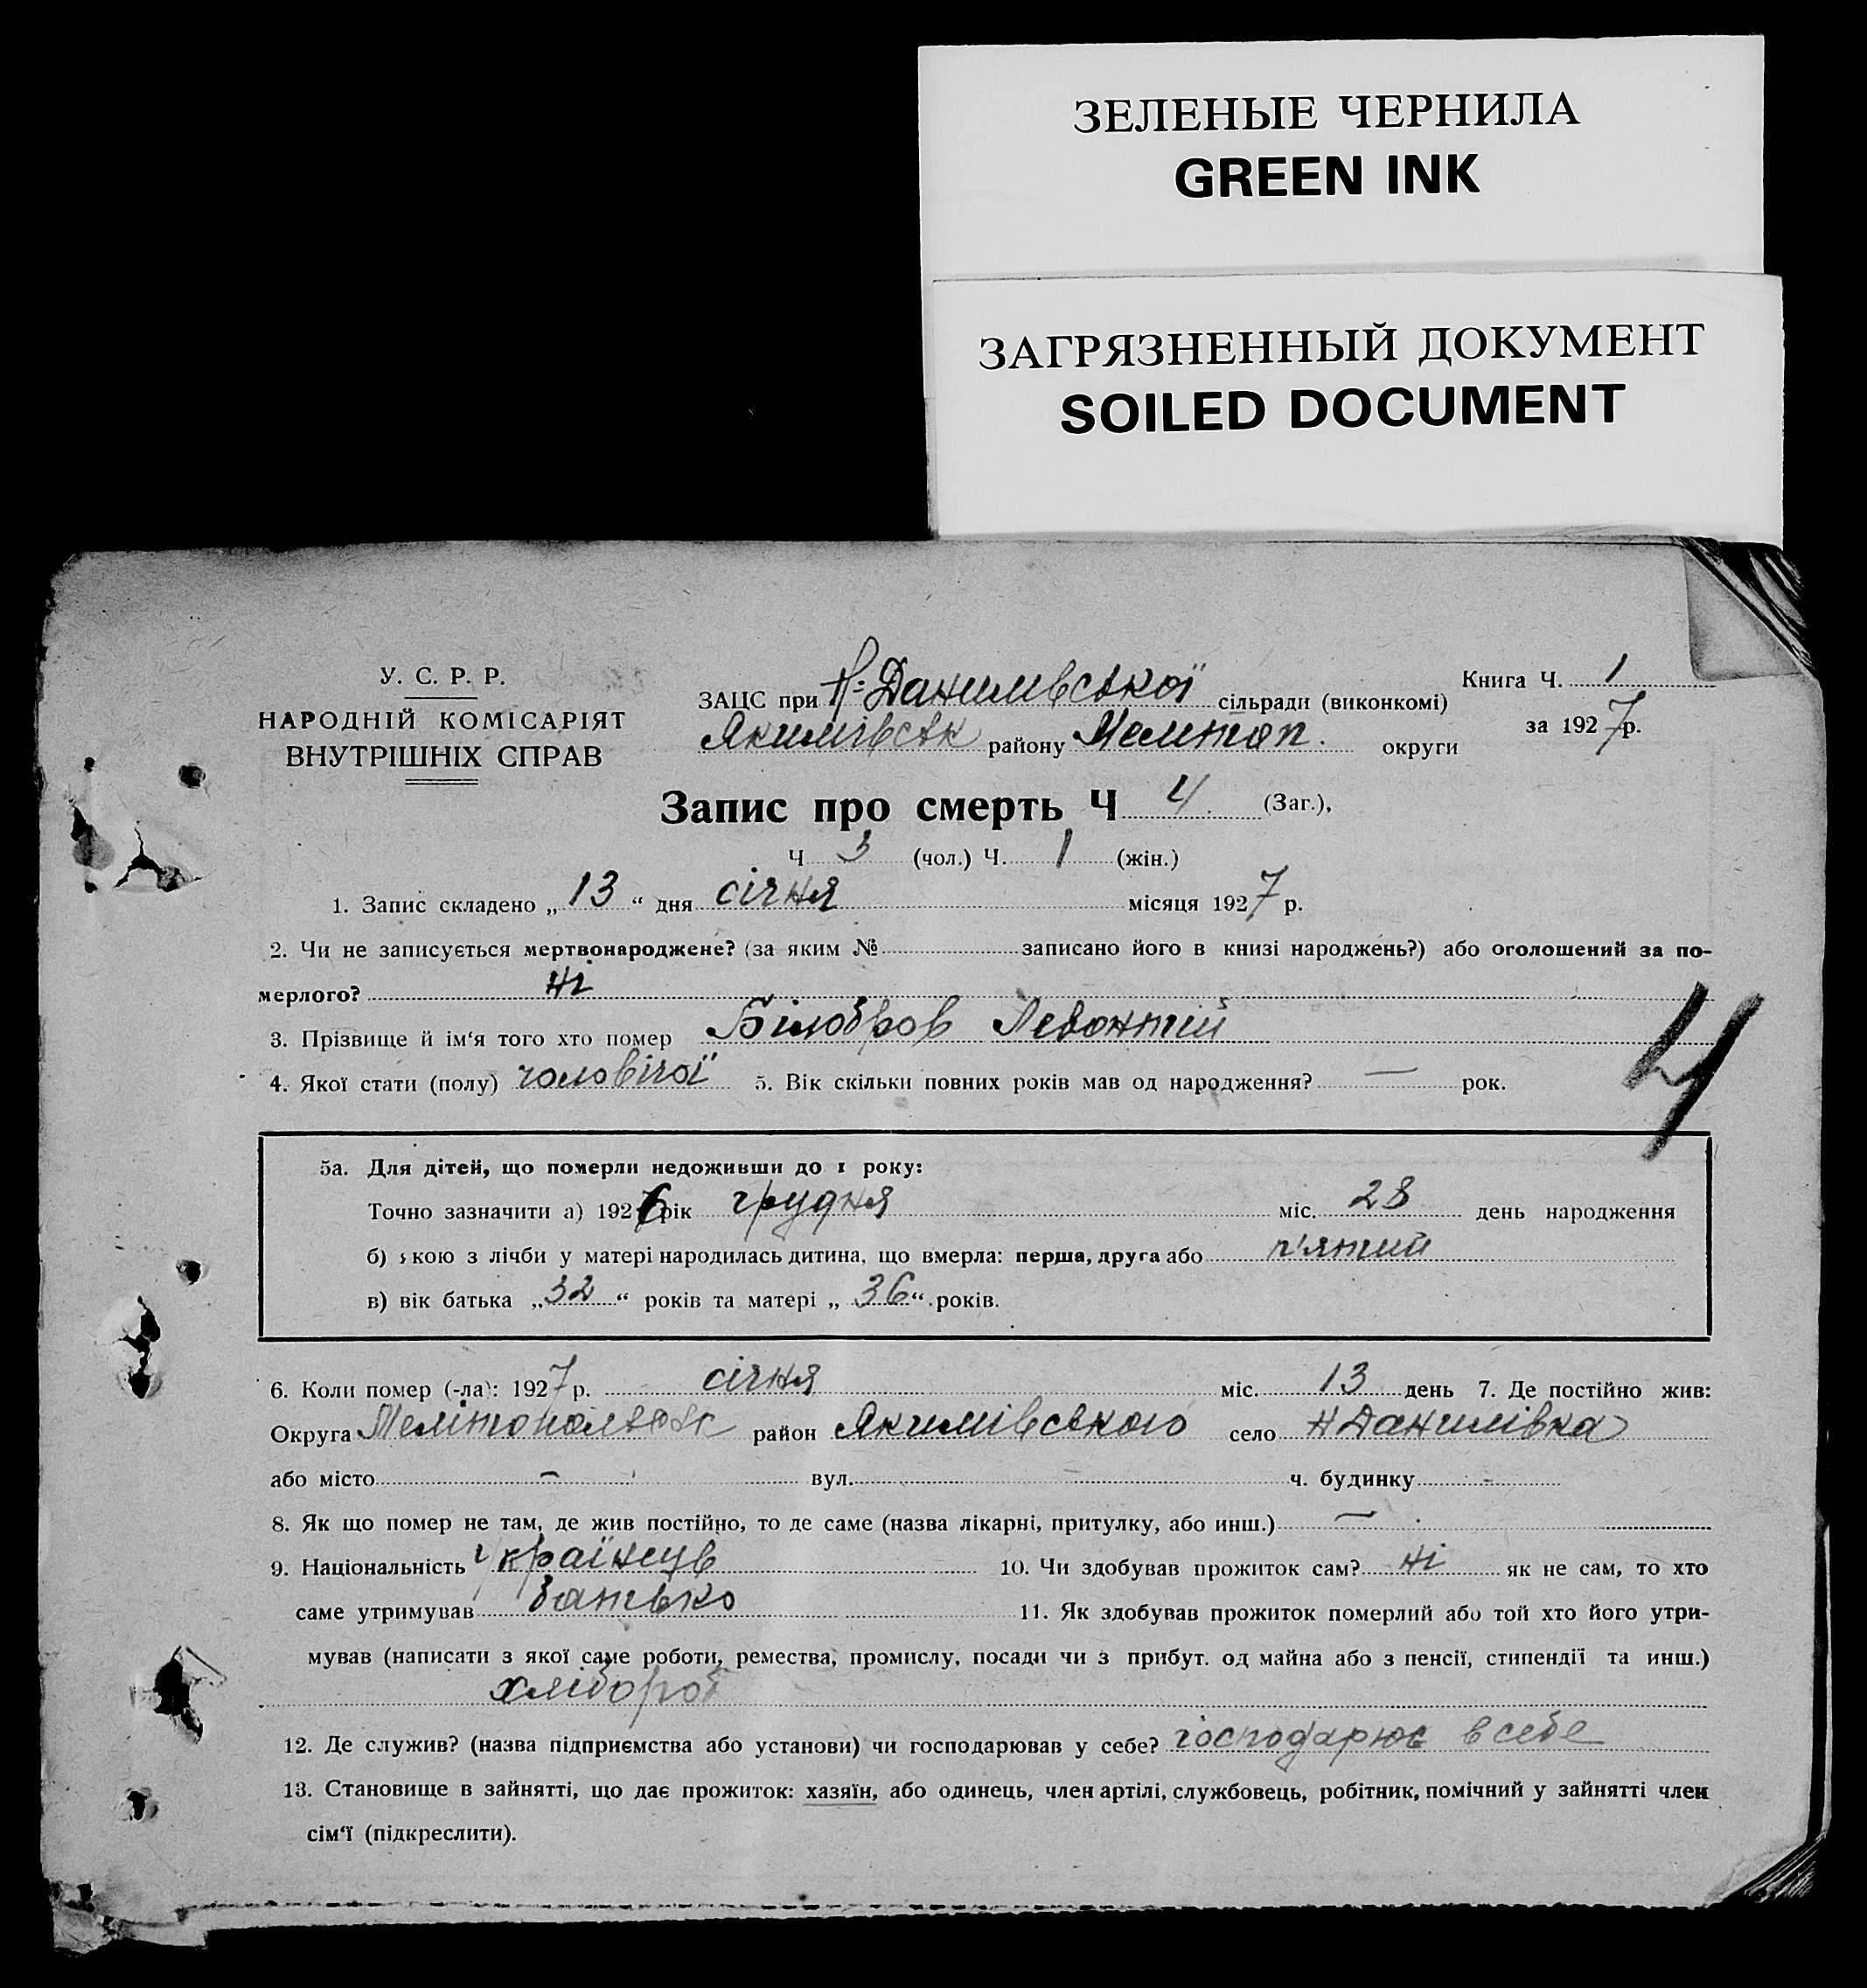 ЗЕЛЕНЫЕ ЧЕРНИЛА
GREEN INK
ЗАГРЯЗНЕННЫЙ ДОКУМЕНТ
SOILED DOCUMENT
У. С. Р. Р.
НАРОДНІЙ КОМІСАРІЯТ
ВНУТРІШНІХ СПРАВ
ЗАЦС при Н-Данилівської сільради (виконкомі)
Якимівськ району Мелітоп. округи
Книга Ч. 1
за 1927р.
Запис про смерть Ч 4. (Заг.),
Ч 3 (чол.) Ч. 1 (жін.)
1. Запис складено „ 13 “ дня січня місяця 1927 р.
2. Чи не записується мертвонароджене? (за яким № записано його в книзі народжень?) або оголошений за по-
мерлого? ні
3. Прізвище й ім‘я того хто помер Білобров Левонтій
4. Якої стати (полу) чоловічої 5. Вік скільки повних років мав од народження? — рок.
4
5а. Для дітей, що померли недоживши до 1 року:
Точно зазначити а) 1926 рік грудня міс. 28 день народження
б) якою з лічби у матері народилась дитина, що вмерла: перша, друга або п'ятий
в) вік батька „32“ років та матері „ 36“ років.
6. Коли помер (-ла): 1927 р. січня міс. 13 день 7. Де постійно жив:
Округа Мелітопольськ район Якимівського село Н Данилівка
або місто – вул. – ч. будинку –
8. Як що помер не там, де жив постійно, то де саме (назва лікарні, притулку, або инш.) —
9. Національність Українців 10. Чи здобував прожиток сам? ні як не сам, то хто
саме утримував батько 11. Як здобував прожиток померлий або той хто його утри-
мував (написати з якої саме роботи, ремества, промислу, посади чи з прибут. од майна або з пенсії, стипендії та инш.)
хлібороб
12. Де служив? (назва підприємства або установи) чи господарював у себе? господарює в себе
13. Становище в зайнятті, що дає прожиток: хазяїн, або одинець, член артілі, службовець, робітник, помічний у зайнятті член
сім‘ї (підкреслити).